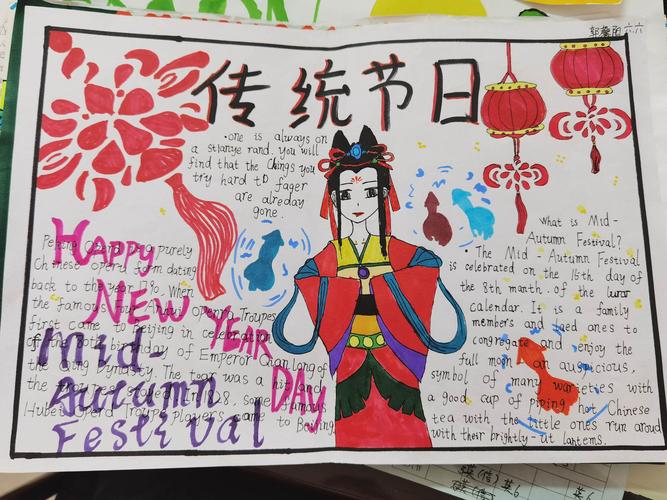 六.六
传统节日
•one is always on
a stranye rand. you will
find that the Chings you
try hard tD fager
are alreday
gone.
HAPPY
NEW YEAR
DAY
Mid-
Autumn
Festival
purely
Chinese form dating
back to the When
the famous Troupes
first came to Beijing in celebration
of the birthday of Emperor Chanlang of
the Qing Dynasty. The tour was a hit and
the some famous
Hubei Opera Troupe players came to Beijing
What is Mid-
Autumn Festival?
• The Mid - Autumn Festival
is celebrated on the 15th day of
the 8th month. of the lunar
calendar. It is a family
members and ones to
congregate and enjoy the
full moon an auspicious,
symbol of many varieties with
a good cup of piping hot Chinese
tea with the little ones run aroud
with their brightly-lit lantems.